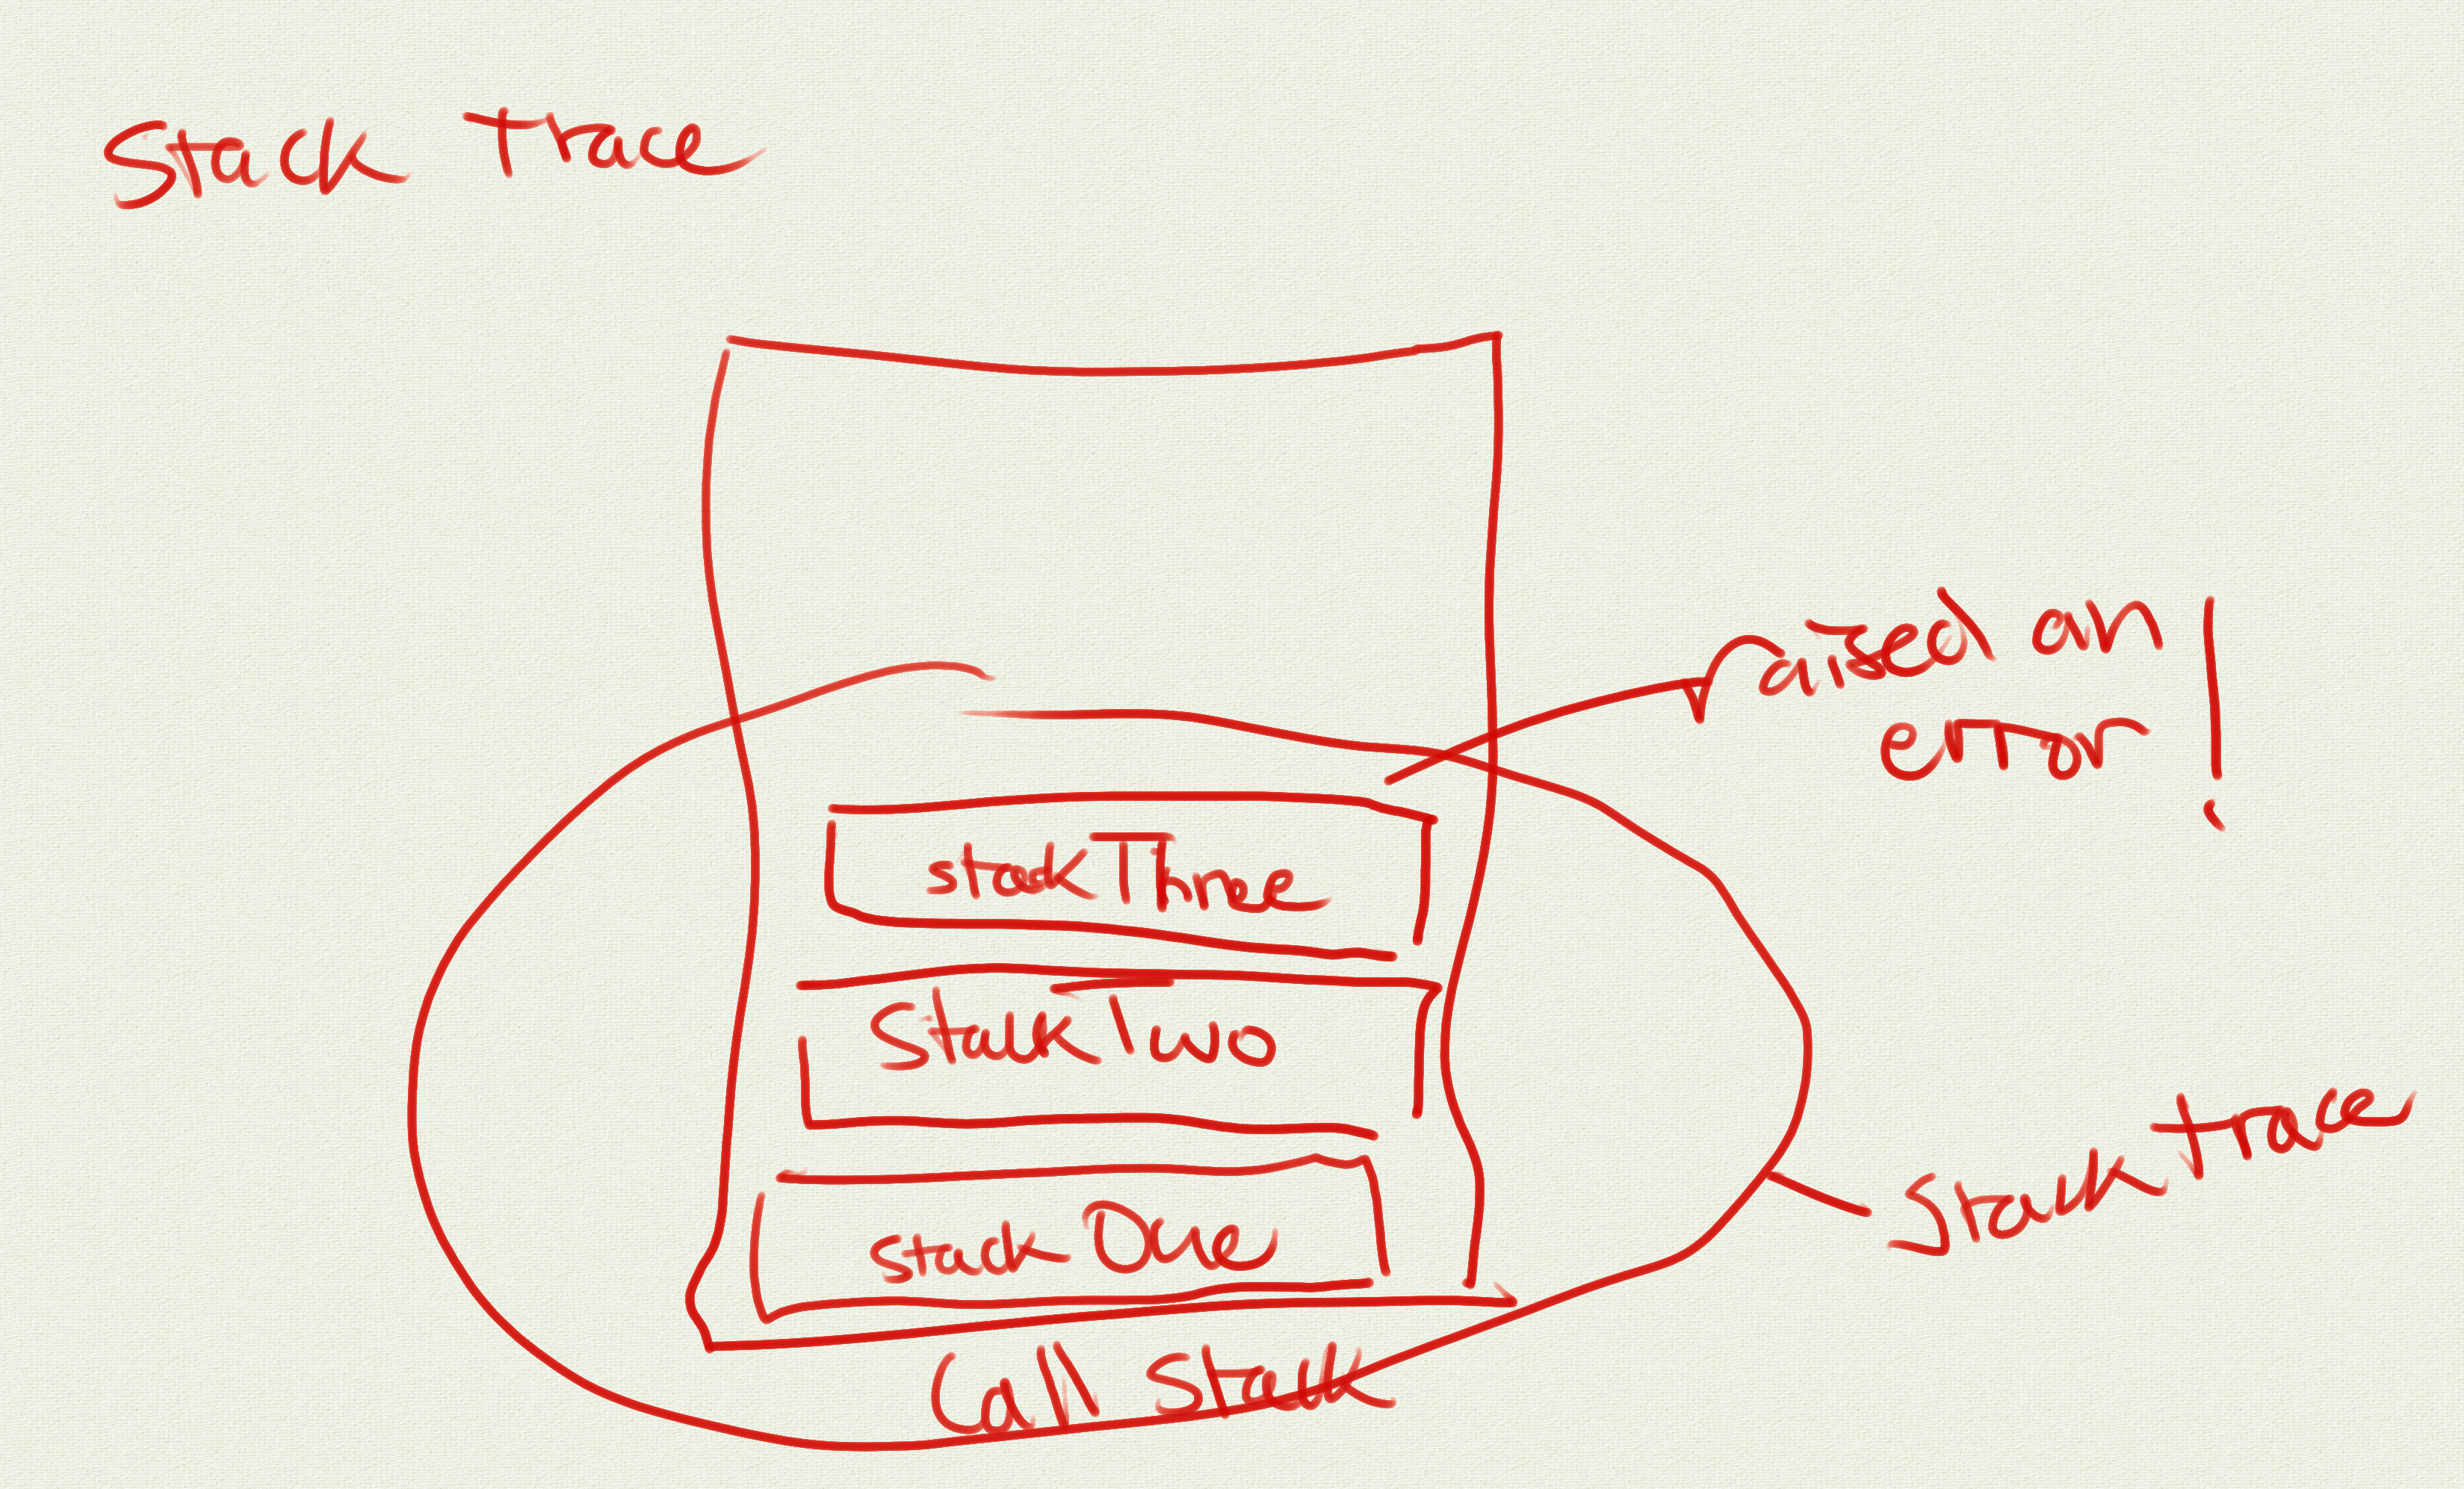 Stack Trace
raised an
error!
stackThree
StackTwo
stackOne
Stack trace
Call Stack